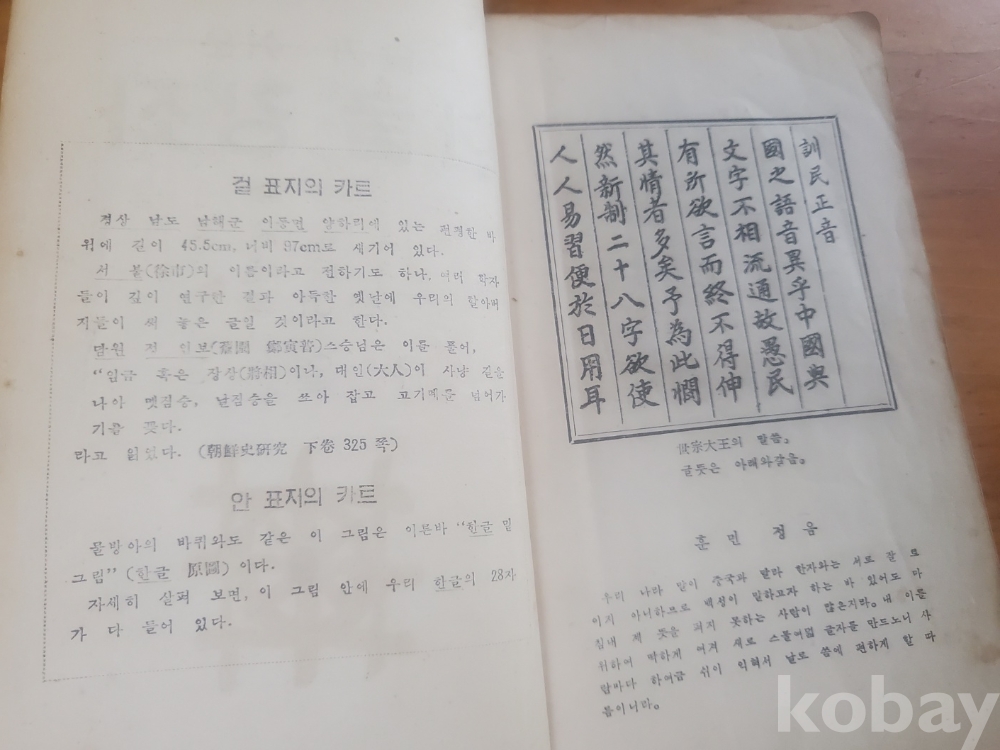 겉 표지의 카트
경상 남도 남해군 이동면 양하리에 있는 편평한 바
위에 길이 45.5cm, 너비 97cm로 새기어 있다.
서 불(徐市)의 이름이라고 전하기도 하나, 여러 학자
들이 깊이 연구한 결과 아득한 옛날에 우리의 할아버
지들이 새 놓은 글일 것이라고 한다.
담원 정 인보(薝園 鄭寅普)스승님은 이를 풀어,
“임금 혹은 장상(將相)이나, 대인(大人)이 사냥 길을
나아 멧짐승, 날짐승을 쓰아 잡고 고기떼를 넘어가
기를 꽂다.
라고 읽었다. (朝鮮史研究 下卷 325 쪽)
안 표지의 카트
물방아의 바퀴와도 같은 이 그림은 이른바 “한글 밑
그림” (한글 原圖) 이다.
자세히 살펴 보면, 이 그림 안에 우리 한글의 28자
가 다 들어 있다.
訓民正音
國之語音異乎中國與
文字不相流通故愚民
有所欲言而終不得伸
其情者多矣予為此憫
然新制二十八字欲使
人人易習便於日用耳
世宗大王의 말씀。
글뜻은 아래와같음。
훈 민 정 음
우리 나라 말이 중국과 달라 한자와는 서로 잘 묘
이지 아니하므로 백성이 말하고자 하는 바 있어도 마
침내 제 뜻을 펴지 못하는 사람이 많은지라。내 이를
위하여 딱하게 여겨 새로 스물여덟 글자를 만드노니 사
람마다 하여금 쉬이 익혀서 날로 씀에 편하게 할 따
름이니라。
kobay